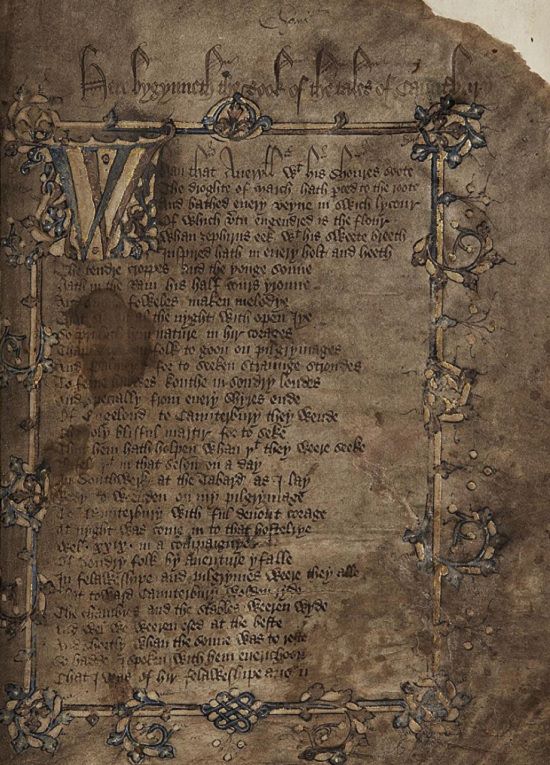 Here bygynneth the Book of the tales of Caunterbury
Whan that Aueryll wt his shoures soote
The droghte of march hath perced to the roote
And bathed euery veyne in swich lycour
Of which vertu engendred is the flour
Whan zephirus eek wt his sweete breeth
Inspired hath in euery holt and heeth
The tendre croppes and the yonge sonne
Hath in the Ram his half cours yronne
And foweles maken melodye
That al the nyght with open Iye
So priketh hem nature in hir corages
Thanne folk to goon on pilgrymages
And for to seeken straunge strondes
To ferne halwes kouthe in sondry londes
And specially from euery shyres ende
Of Engelond to Caunterbury they wende
The holy blisful martir for to seke
That hem hath holpen whan þt they weere seeke
Bifel þt in that seson on a day
In Southwerk at the Tabard as I lay
Redy to weenden on my pilgrymage
To Caunterbury with ful deuout corage
At nyght was come in to that hostelrye
Wel .xxix. in a compaignye
Of sondry folk by auenture yfalle
In felaweshipe and pilgrymes weere they alle
That toward Caunterbury wolden ryde
The chambres and the stables weeren wyde
And wel we weeren esed at the beste
And shortly whan the sonne was to reste
So hadde I spoken with hem euerichoon
That I was of hir felaweshipe anon